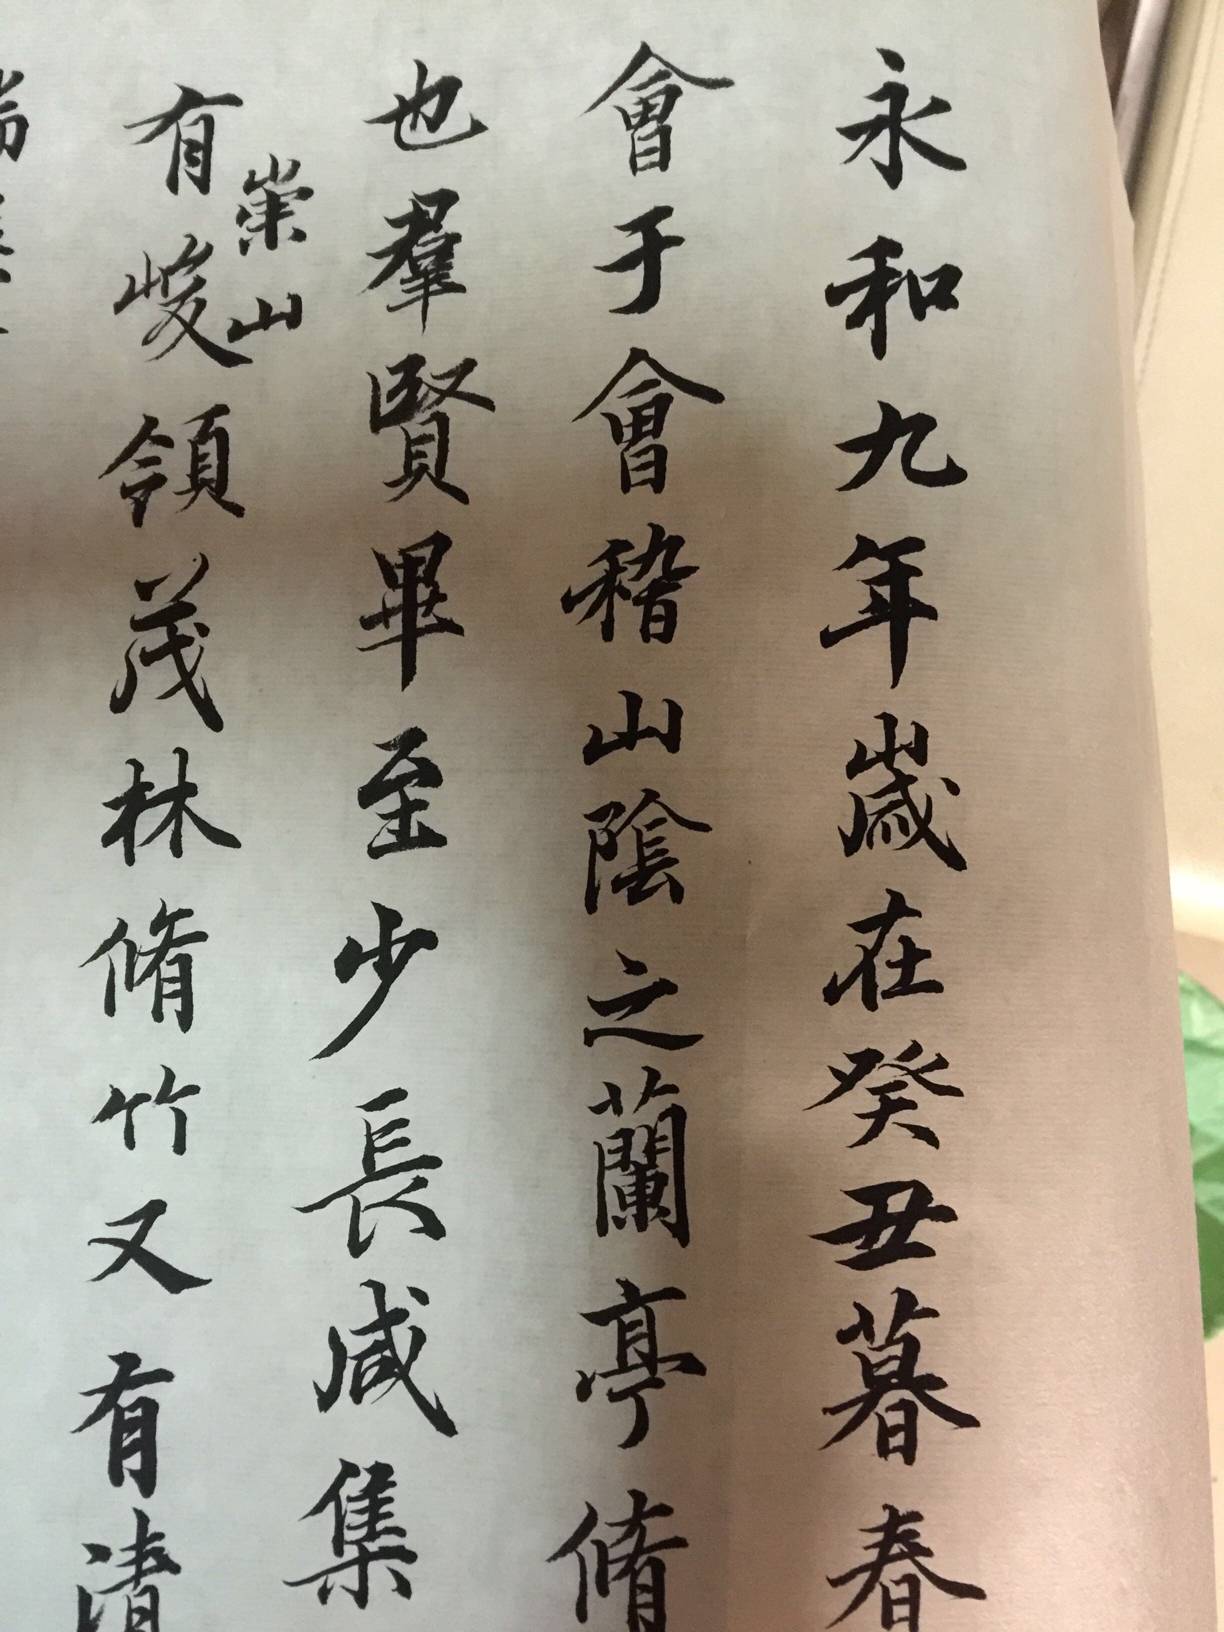 永和九年歲在癸丑暮春
會于會稽山陰之蘭亭脩
也羣賢畢至少長咸集
崇山
有峻領茂林脩竹又有清